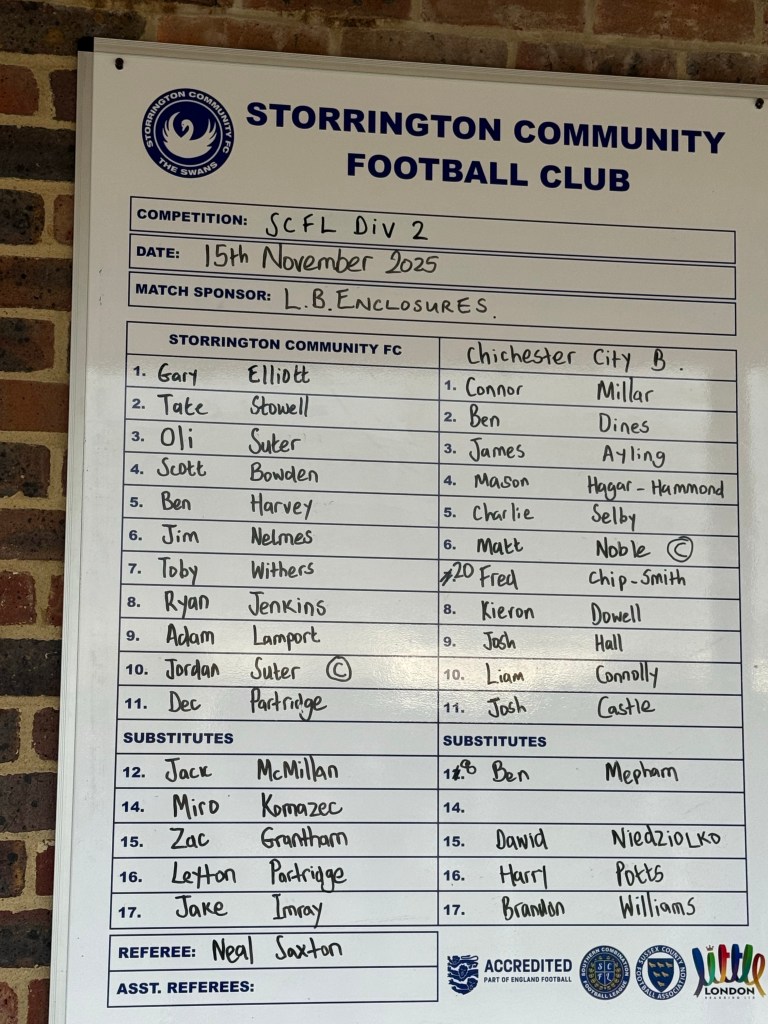 STORRINGTON COMMUNITY FC
THE SWANS
STORRINGTON COMMUNITY
FOOTBALL CLUB
COMPETITION: SCFL Div 2
DATE: 15th November 2025
MATCH SPONSOR: L.B. ENCLOSURES.
STORRINGTON COMMUNITY FC
1. Gary Elliott
2. Tate Stowell
3. Oli Suter
4. Scott Bowden
5. Ben Harvey
6. Jim Nelmes
7. Toby Withers
8. Ryan Jenkins
9. Adam Lamport
10. Jordan Suter Ⓒ
11. Dec Partridge
SUBSTITUTES
12. Jack McMillan
14. Miro Komazec
15. Zac Grantham
16. Leyton Partridge
17. Jake Imray
Chichester City B.
1. Connor Millar
2. Ben Dines
3. James Ayling
4. Mason Hagar-Hammond
5. Charlie Selby
6. Matt Noble Ⓒ
20 Fred Chip-Smith
8. Kieron Dowell
9. Josh Hall
10. Liam Connolly
11. Josh Castle
SUBSTITUTES
18 Ben Mepham
14.
15. Dawid Niedziolko
16. Harry Potts
17. Brandon Williams
REFEREE: Neal Saxton
ASST. REFEREES:
ACCREDITED
PART OF ENGLAND FOOTBALL
SOUTHERN COMBINATION
FOOTBALL LEAGUE
SCFL
SUSSEX COUNTY
FOOTBALL ASSOCIATION
little
LONDON